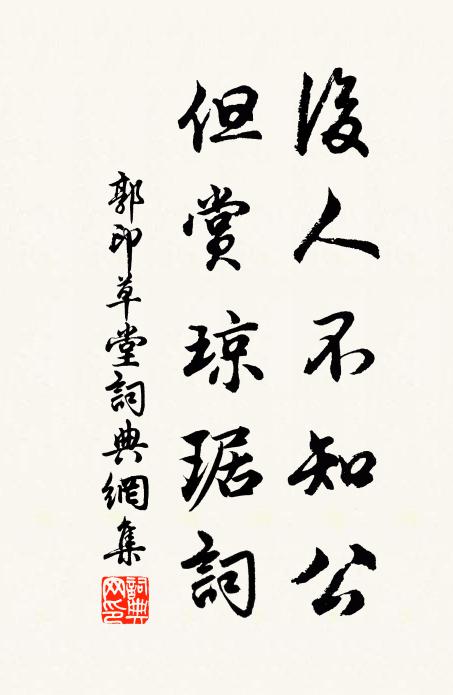 後人不知公
但賞琼琚詞
郭印草堂詞典網集
詞典网印